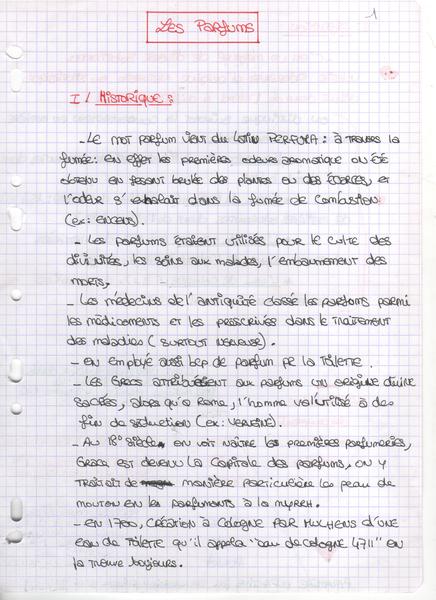 1
Les Parfums
I/ Historique :
- Le mot parfum vient du latin PERFUMA : à travers la
fumée : en effet les premières odeurs aromatique on été
obtenu en fesant brulée des plantes ou des écorces, et
l'odeur s'exhalait dans la fumée de combustion
(ex : encens).
- Les parfums étaient utilisés pour le culte des
divinités, les soins aux malades, l'embaumement des
morts.
- Les médecins de l'antiquité classé les parfums parmi
les médicaments et les prescrivés dans le traitement
des maladies (surtout nerveuse).
- en employé aussi bcp de parfum pr la toilette.
- Les Grecs attribuésent aux parfums un origine divine
sacrées, alors qu'a Rome, l'homme va l'utilisé à des
fin de séduction (ex : verveine).
- Au 18e siècle on voit naître les premières parfumeries,
Grace est devenu la capitale des parfums, on y
traitait de manière particulière les peau de
mouton en les parfuments à la myrrh.
- en 1700, création à Cologne par Mulhens d'une
eau de toilette qu'il appela "eau de cologne 4711" on
la trouve toujours.